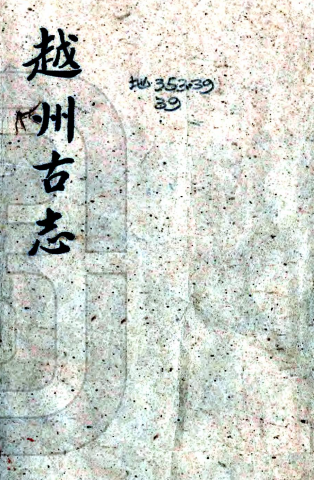 越州古志
地 353.39
39